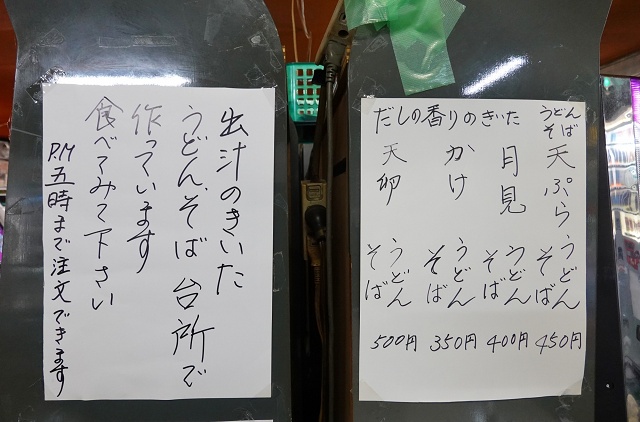 出汁のきいた
うどん、そば 台所で
作っています
食べてみて下さい
P.M 五時まで注文できます
だしの香りのきいた うどん そば
天ぷら うどん そば 450円
月見 うどん そば 400円
かけ うどん そば 350円
天卵 うどん そば 500円